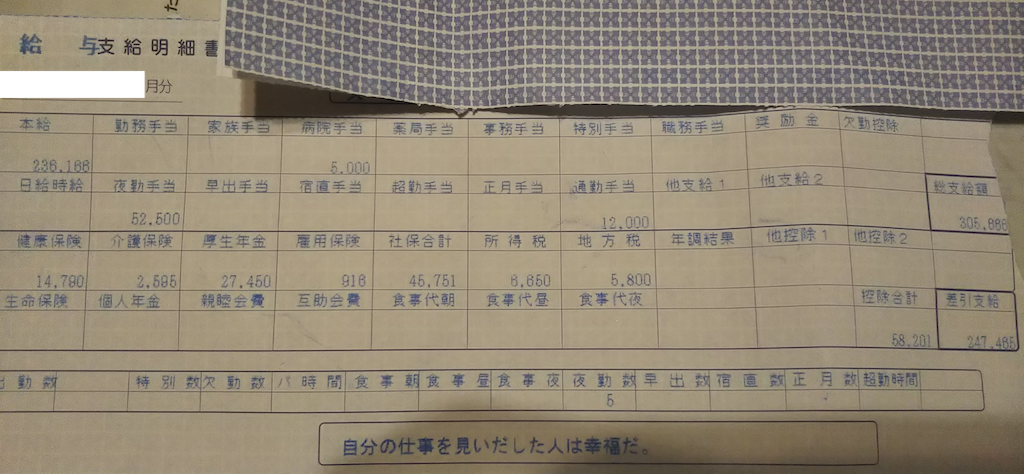 た
給 与支給明細書
月分
本給 勤務手当 家族手当 病院手当 薬局手当 事務手当 特別手当 職務手当 奨励金 欠勤控除
236,166 5,000
日給時給 夜勤手当 早出手当 宿直手当 超勤手当 正月手当 通勤手当 他支給1 他支給2 総支給額
52,500 12,000 305,666
健康保険 介護保険 厚生年金 雇用保険 社保合計 所得税 地方税 年調結果 他控除1 他控除2
14,790 2,595 27,450 916 45,751 6,650 5,800
生命保険 個人年金 親睦会費 互助会費 食事代朝 食事代昼 食事代夜 控除合計 差引支給
58,201 247,465
出勤数 特別数 欠勤数 パ時間 食事朝 食事昼 食事夜 夜勤数 早出数 宿直数 正月数 超勤時間
5
自分の仕事を見いだした人は幸福だ。